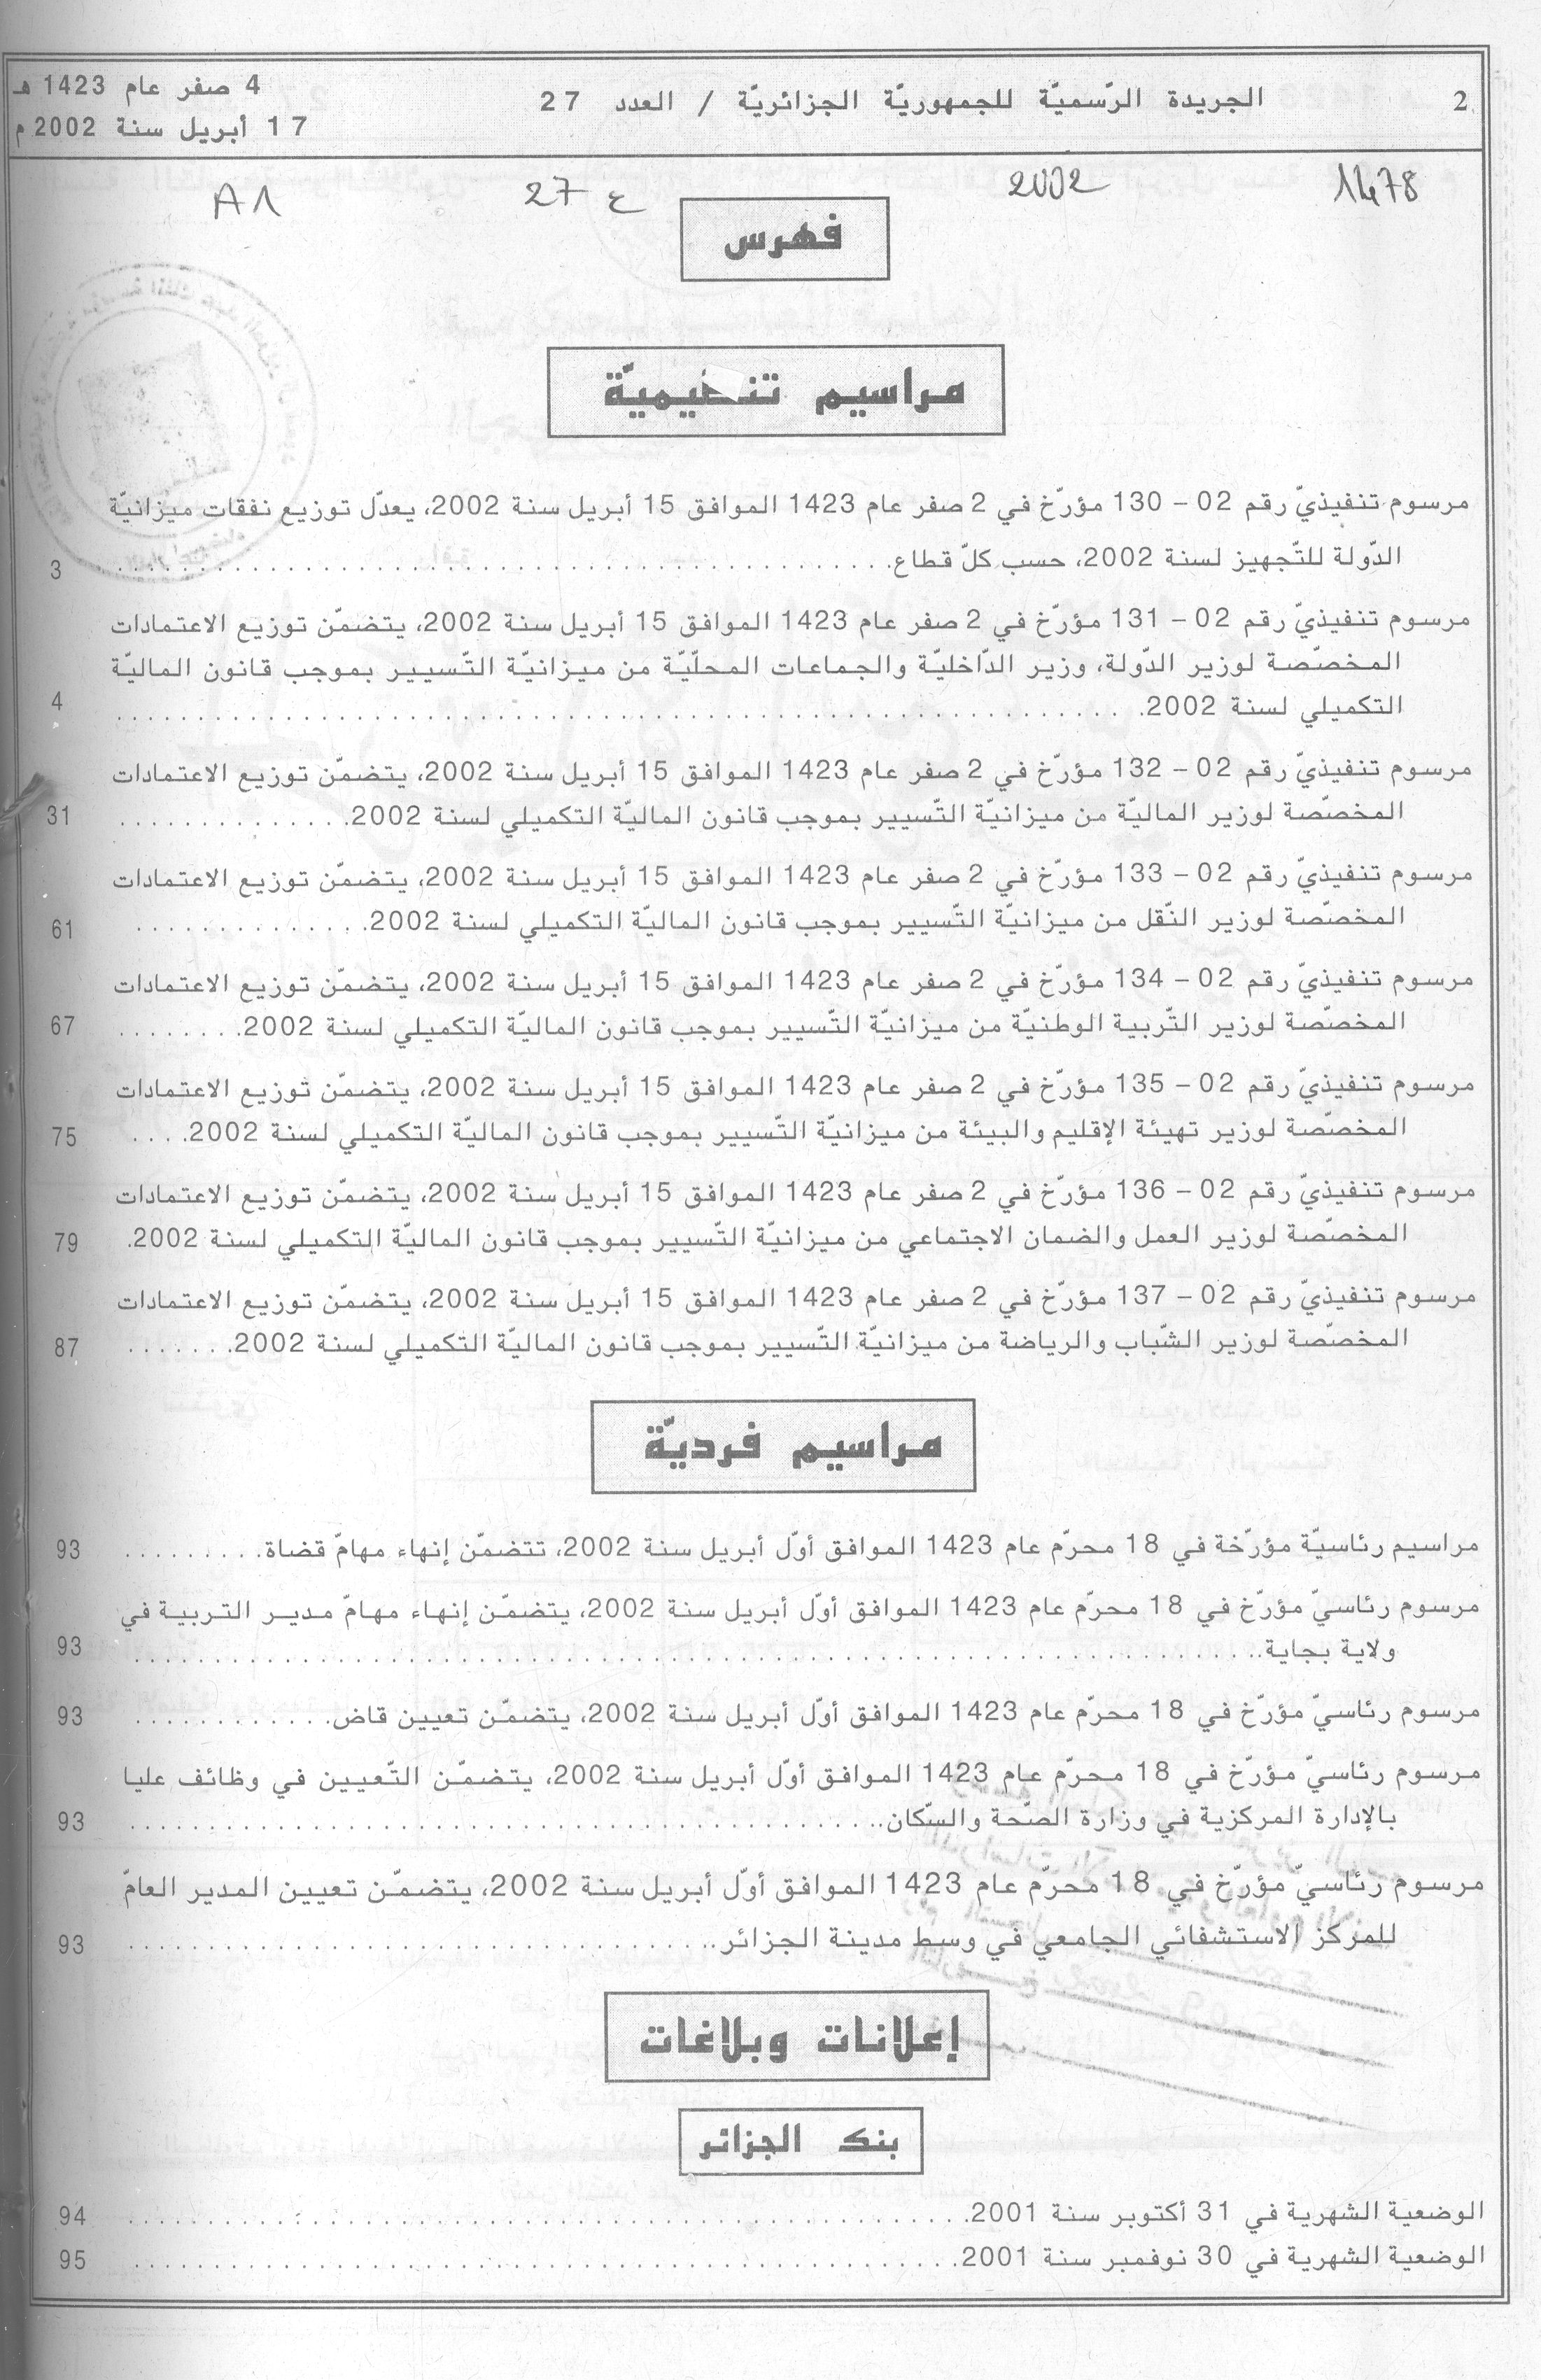 2
الجريدة الرّسميّة للجمهوريّة الجزائريّة / العدد 27
4 صفر عام 1423 هـ
17 أبريل سنة 2002 م
1478
2002
27 ع
A1
فهرس
مراسيم تنظيميّة
مرسوم تنفيذيّ رقم 02 – 130 مؤرّخ في 2 صفر عام 1423 الموافق 15 أبريل سنة 2002، يعدّل توزيع نفقات ميزانيّة
الدّولة للتّجهيز لسنة 2002، حسب كلّ قطاع. . . . . . . . . . 3
مرسوم تنفيذيّ رقم 02 – 131 مؤرّخ في 2 صفر عام 1423 الموافق 15 أبريل سنة 2002، يتضمّن توزيع الاعتمادات
المخصّصة لوزير الدّولة، وزير الدّاخليّة والجماعات المحلّيّة من ميزانيّة التّسيير بموجب قانون الماليّة
التكميلي لسنة 2002. . . . . . . . . . 4
مرسوم تنفيذيّ رقم 02 – 132 مؤرّخ في 2 صفر عام 1423 الموافق 15 أبريل سنة 2002، يتضمّن توزيع الاعتمادات
المخصّصة لوزير الماليّة من ميزانيّة التّسيير بموجب قانون الماليّة التكميلي لسنة 2002. . . . . . . . . . 31
مرسوم تنفيذيّ رقم 02 – 133 مؤرّخ في 2 صفر عام 1423 الموافق 15 أبريل سنة 2002، يتضمّن توزيع الاعتمادات
المخصّصة لوزير النّقل من ميزانيّة التّسيير بموجب قانون الماليّة التكميلي لسنة 2002. . . . . . . . . . 61
مرسوم تنفيذيّ رقم 02 – 134 مؤرّخ في 2 صفر عام 1423 الموافق 15 أبريل سنة 2002، يتضمّن توزيع الاعتمادات
المخصّصة لوزير التّربية الوطنيّة من ميزانيّة التّسيير بموجب قانون الماليّة التكميلي لسنة 2002. . . . . . . . . 67
مرسوم تنفيذيّ رقم 02 – 135 مؤرّخ في 2 صفر عام 1423 الموافق 15 أبريل سنة 2002، يتضمّن توزيع الاعتمادات
المخصّصة لوزير تهيئة الإقليم والبيئة من ميزانيّة التّسيير بموجب قانون الماليّة التكميلي لسنة 2002. . . . . 75
مرسوم تنفيذيّ رقم 02 – 136 مؤرّخ في 2 صفر عام 1423 الموافق 15 أبريل سنة 2002، يتضمّن توزيع الاعتمادات
المخصّصة لوزير العمل والضمان الاجتماعي من ميزانيّة التّسيير بموجب قانون الماليّة التكميلي لسنة 2002. 79
مرسوم تنفيذيّ رقم 02 – 137 مؤرّخ في 2 صفر عام 1423 الموافق 15 أبريل سنة 2002، يتضمّن توزيع الاعتمادات
المخصّصة لوزير الشّباب والرياضة من ميزانيّة التّسيير بموجب قانون الماليّة التكميلي لسنة 2002. . . . . . . . 87
مراسيم فرديّة
مراسيم رئاسيّة مؤرّخة في 18 محرّم عام 1423 الموافق أوّل أبريل سنة 2002، تتضمّن إنهاء مهامّ قضاة. . . . . . . . . . 93
مرسوم رئاسيّ مؤرّخ في 18 محرّم عام 1423 الموافق أوّل أبريل سنة 2002، يتضمّن إنهاء مهامّ مدير التربية في
ولاية بجاية. . . . . . . . . . 93
مرسوم رئاسيّ مؤرّخ في 18 محرّم عام 1423 الموافق أوّل أبريل سنة 2002، يتضمّن تعيين قاض. . . . . . . . . . 93
مرسوم رئاسيّ مؤرّخ في 18 محرّم عام 1423 الموافق أوّل أبريل سنة 2002، يتضمّن التّعيين في وظائف عليا
بالإدارة المركزية في وزارة الصّحة والسّكان. . . . . . . . . . 93
مرسوم رئاسيّ مؤرّخ في 18 محرّم عام 1423 الموافق أوّل أبريل سنة 2002، يتضمّن تعيين المدير العامّ
للمركز الاستشفائي الجامعي في وسط مدينة الجزائر. . . . . . . . . . 93
إعلانات وبلاغات
بنك الجزائر
الوضعية الشهرية في 31 أكتوبر سنة 2001. . . . . . . . . . 94
الوضعية الشهرية في 30 نوفمبر سنة 2001. . . . . . . . . . 95